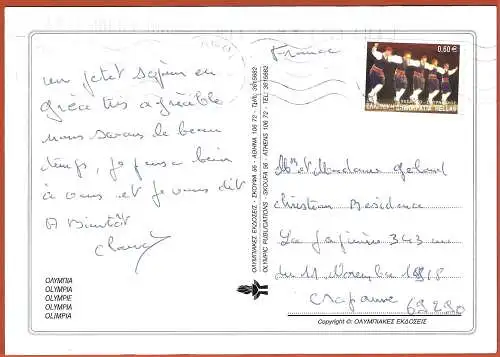 un petit séjour en
grèce très agréable
nous avons de beau
temps, je pense bien
à vous et je vous dit
A Bientôt
ΟΛΥΜΠΙΑ
OLYMPIA
OLYMPIE
OLYMPIA
OLIMPIA
ΟΛΥΜΠΙΑΚΕΣ ΕΚΔΟΣΕΙΣ - ΣΚΟΥΦΑ 56 - ΑΘΗΝΑ 106 72 - ΤΗΛ: 3615682
OLYMPIC PUBLICATIONS - SKOUFA 56 - ATHENS 106 72 - TEL: 3615682
France
0,60 €
HELLAS
Mr et Madame
Christian Residence
La 343 rue
du 11 Novembre 1918
Craponne 69290
Copyright ©: ΟΛΥΜΠΙΑΚΕΣ ΕΚΔΟΣΕΙΣ